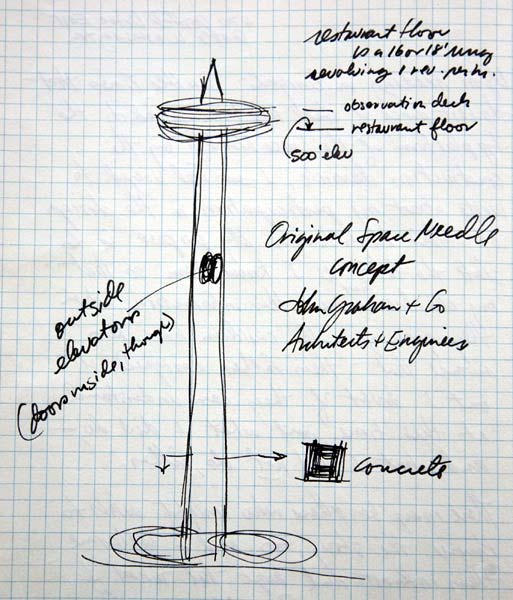 restaurant floor
is a 16 or 18' ring
revolving 1 rev. per hr.
observation deck
restaurant floor
500' elev
Original Space Needle
concept
John Graham & Co
Architects & Engineers
outside
elevators
(doors inside, though)
concrete